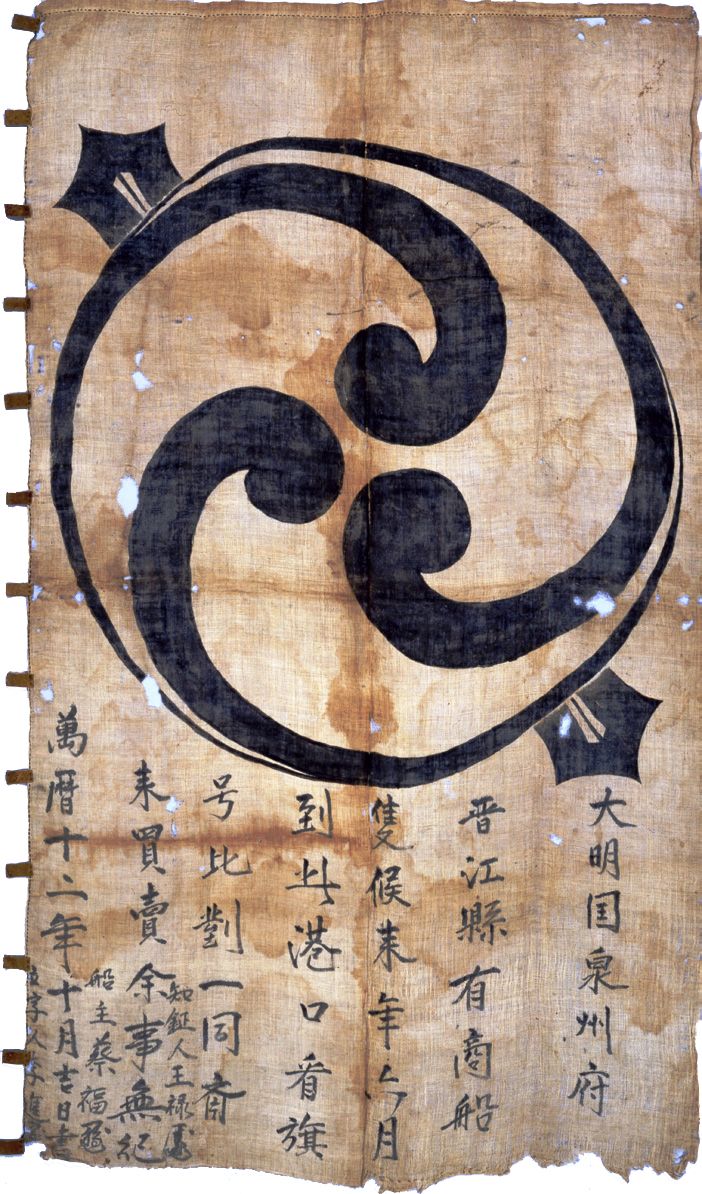 大明国泉州府
晋江縣有商船
隻候来年六月
到此港口看旗
号比對一同斎
来買賣余事無紀
萬暦十二年十月吉日書
知鉦人王禄
船主蔡福